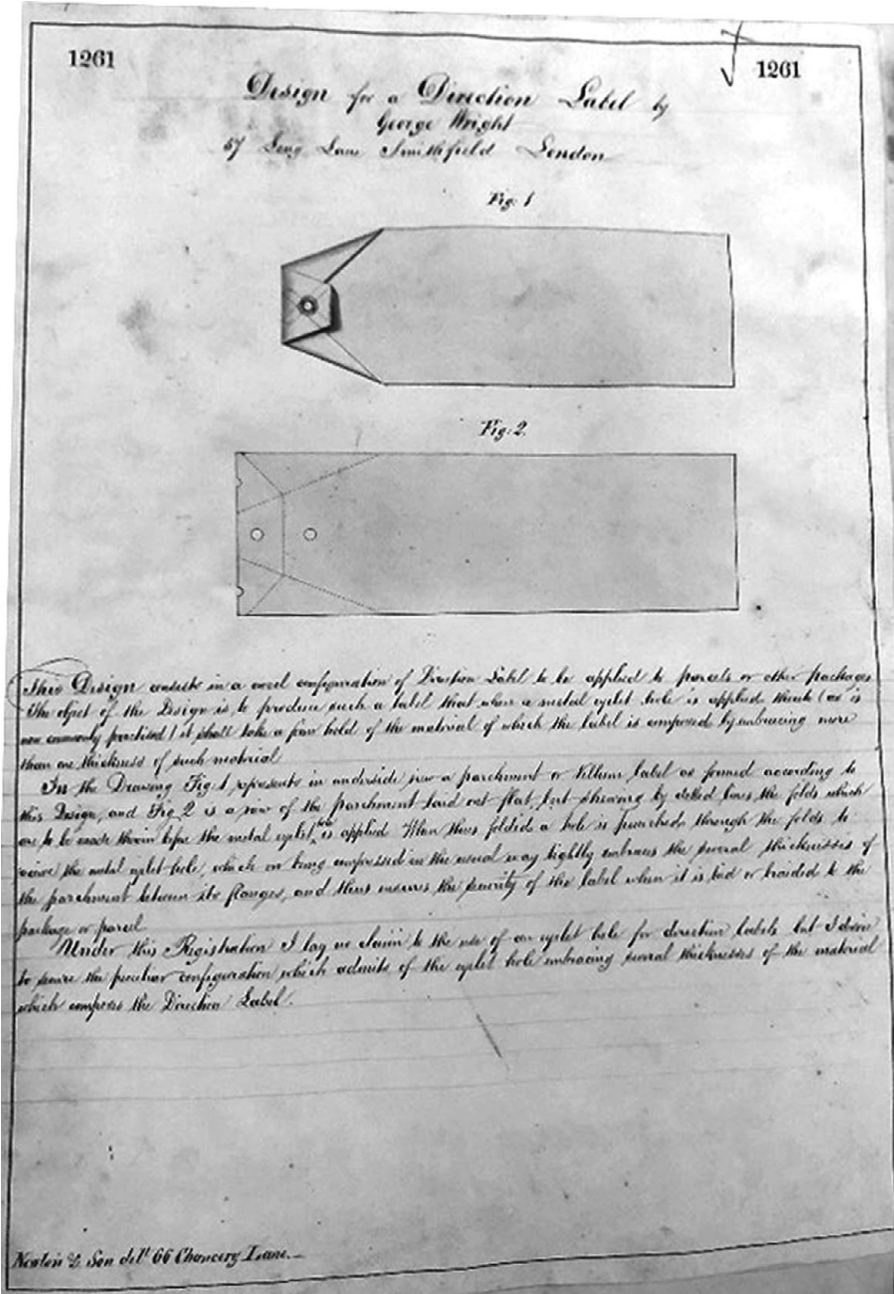 1261
1261
Design for a Direction Label by
George Wright
57 Long Lane Smithfield London
Fig: 1
Fig: 2.
This Design consists in a novel configuration of Direction Label to be applied to parcels or other packages
The object of the Design is to produce such a label that when a metal eyelet hole is applied thereto (as is
now commonly practised) it shall take a firm hold of the material of which the label is composed by embracing more
than one thickness of such material
In the Drawing Fig. 1 represents in underside view a parchment or vellum label as formed according to
this Design, and Fig. 2 is a view of the parchment laid out flat, but shewing by dotted lines the folds which
are to be made therein before the metal eyelet hole is applied When thus folded a hole is punched through the folds to
receive the metal eyelet-hole, which on being compressed in the usual way tightly embraces the several thicknesses of
the parchment between its flanges, and thus ensures the security of the label when it is tied or braided to the
package or parcel
Under this Registration I lay no claim to the use of an eyelet hole for direction labels but I desire
to secure the peculiar configuration which admits of the eyelet hole embracing several thicknesses of the material
which composes the Direction Label.
Newton & Son delt. 66 Chancery Lane.